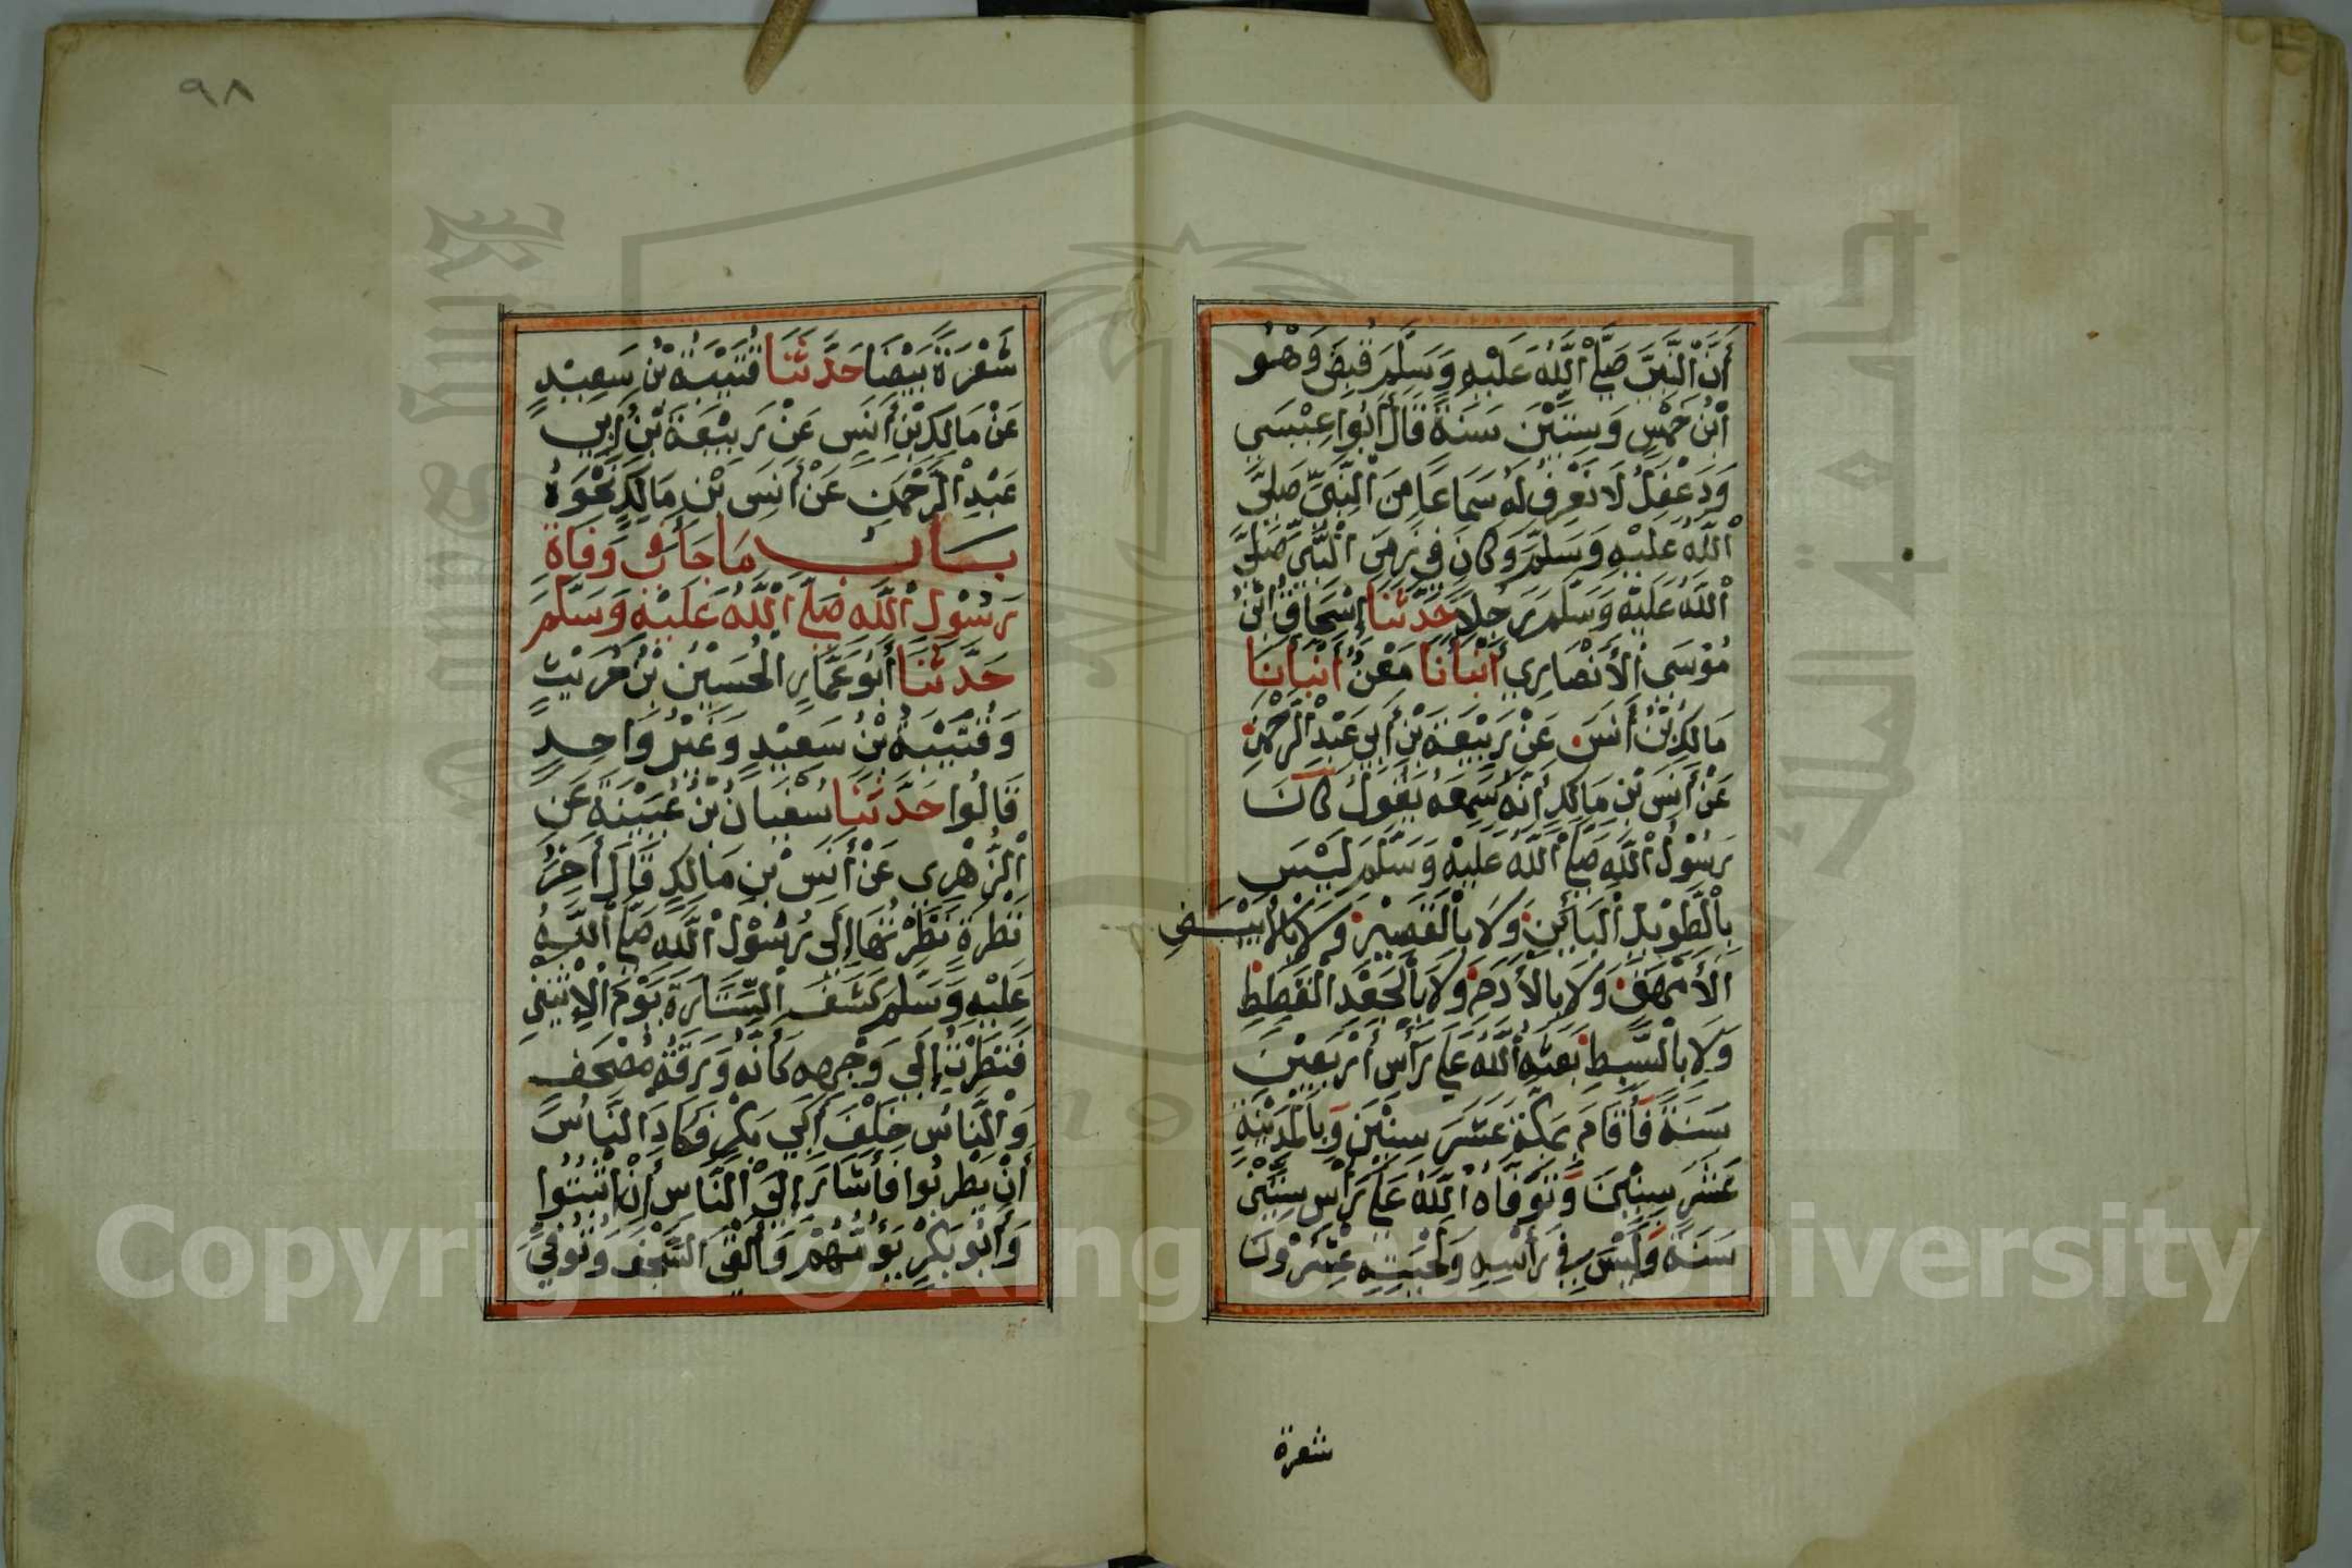 أَنَّ النَّبِيَّ صَلَّى اللَّهُ عَلَيْهِ وَسَلَّمَ قُبِضَ وَهُوَ
ابْنُ خَمْسٍ وَسِتِّيْنَ سَنَةً قَالَ أَبُوا عِيْسَى
وَدَغْفَلُ لَا نَعْرِفُ لَهُ سَمَاعًا مِنَ النَّبِيِّ صَلَّى
اللَّهُ عَلَيْهِ وَسَلَّمَ وَكَانَ فِي زَمَنِ النَّبِيِّ صَلَّى
اللَّهُ عَلَيْهِ وَسَلَّمَ رَجُلًا حَدَّثَنَا إِسْحَاقُ ابْنُ
مُوْسَى الْأَنْصَارِي أَنْبَأَنَا مَعْنٌ أَنْبَأَنَا
مَالِكُ بْنُ أَنَسٍ عَنْ رَبِيْعَةَ بْنِ أَبِي عَبْدِ الرَّحْمٰنِ
عَنْ أَنَسِ بْنِ مَالِكٍ أَنَّهُ سَمِعَهُ يَقُولُ كَانَ
رَسُوْلُ اللَّهِ صَلَّى اللَّهُ عَلَيْهِ وَسَلَّمَ لَيْسَ
بِالطَّوِيْلِ الْبَائِنِ وَلَا بِالْقَصِيْرِ وَلَا بِالْأَبْيَضِ
الْأَمْهَقِ وَلَا بِالْأَدَمِ وَلَا بِالْجَعْدِ الْقَطَطِ
وَلَا بِالسَّبِطِ بَعَثَهُ اللَّهُ عَلَى رَأْسِ أَرْبَعِيْنَ
سَنَةً فَأَقَامَ بِمَكَّةَ عَشْرَ سِنِيْنَ وَبِالْمَدِيْنَةِ
عَشْرَ سِنِيْنَ وَتَوَفَّاهُ اللَّهُ عَلَى رَأْسِ سِتِّيْنَ
سَنَةً وَلَيْسَ فِي رَأْسِهِ وَلِحْيَتِهِ عِشْرُوْنَ
شعرة
٩٨
شَعْرَةً بَيْضَا حَدَّثَنَا قُتَيْبَةُ بْنُ سَعِيْدٍ
عَنْ مَالِكِ بْنِ أَنَسٍ عَنْ رَبِيْعَةَ بْنِ أَبِي
عَبْدِ الرَّحْمٰنِ عَنْ أَنَسِ بْنِ مَالِكٍ نَحْوَهُ
بَابُ مَا جَاَ فِي وَفَاةِ
رَسُوْلِ اللَّهِ صَلَّى اللَّهُ عَلَيْهِ وَسَلَّمَ
حَدَّثَنَا أَبُو عَمَّارٍ الْحُسَيْنُ بْنُ حُرَيْثٍ
وَقُتَيْبَةُ بْنُ سَعِيْدٍ وَغَيْرُ وَاحِدٍ
قَالُوا حَدَّثَنَا سُفْيَانُ بْنُ عُيَيْنَةَ عَنِ
الزُّهْرِي عَنْ أَنَسِ بْنِ مَالِكٍ قَالَ أَخِرُ
نَظْرَةٍ نَظَرْتُهَا إِلَى رَسُوْلِ اللَّهِ صَلَّى اللَّهُ
عَلَيْهِ وَسَلَّمَ كَشَفَ السِّتَارَةَ يَوْمَ الْإِثْنَيْنِ
فَنَظَرْتُ إِلَى وَجْهِهِ كَأَنَّهُ وَرَقَةُ مُصْحَفٍ
وَالنَّاسُ خَلْفَ أَبِي بَكْرٍ فَكَادَ النَّاسُ
أَنْ يَطْرِبُوا فَأَشَارَ إِلَى النَّاسِ أَنْ اثْبُتُوا
وَأَبُو بَكْرٍ يَؤُمُّهُمْ وَأَلْقَى السَّجْفَ وَتُوُفِّيَ
Copyright © King Saud University